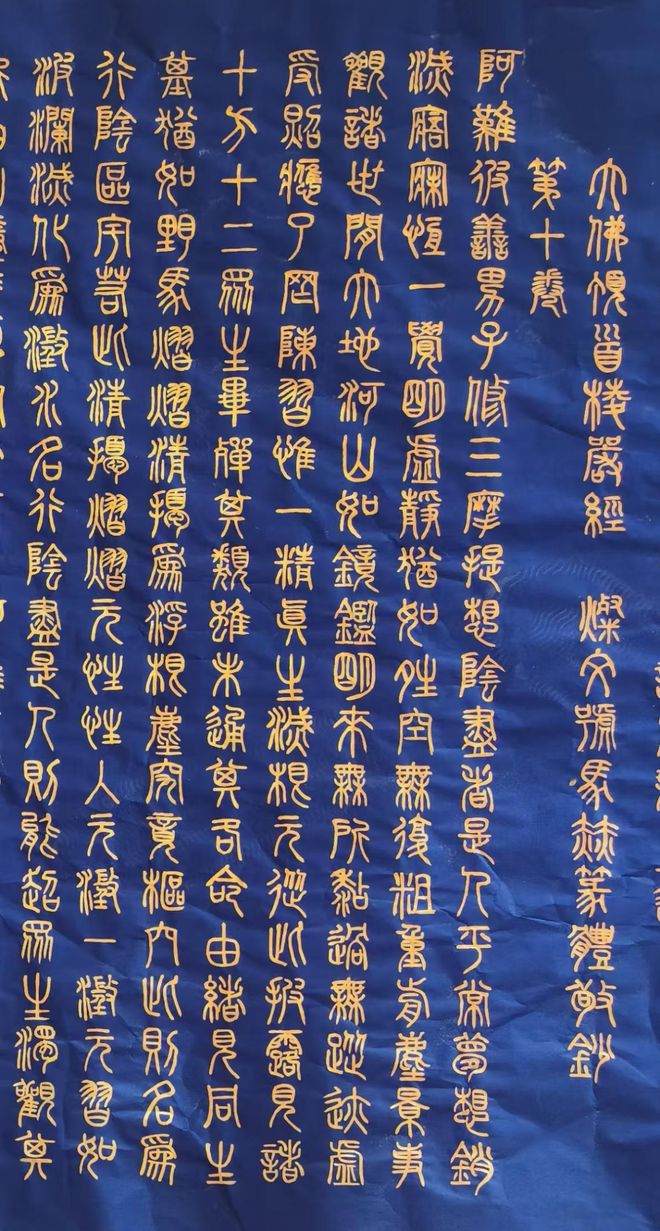 大佛頂首楞嚴經 燦文號馬赫篆體敬鈔
第十卷
阿難彼善男子修三摩提想陰盡者是人平常夢想銷
滅寤寐恆一覺明虛靜猶如晴空無復粗重前塵景事
觀諸世間大地河山如鏡鑑明來無所黏過無蹤跡虛
受照應了罔陳習惟一精真生滅根元從此披露見諸
十方十二眾生畢殫其類雖未通其各命由緒見同生
基猶如野馬熠熠清擾為浮根塵究竟樞穴此則名為
行陰區宇若此清擾熠熠元性性入元澄一澄元習如
波瀾滅化為澄水名行陰盡是人則能超眾生濁觀其